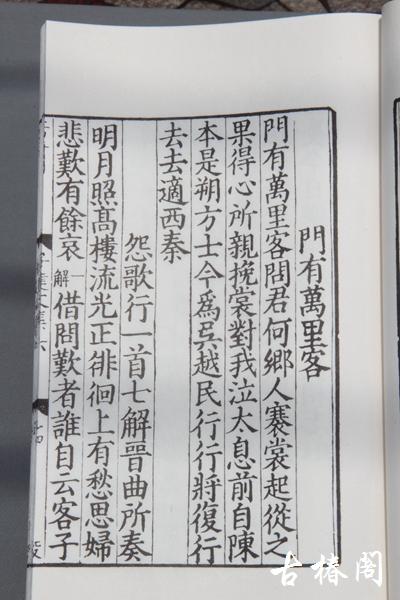 門有萬里客
門有萬里客問君何鄉人褰裳起從之
果得心所親挽裳對我泣太息前自陳
本是朔方士今爲吳越民行行將復行
去去適西秦
怨歌行一首七解晉曲所奏
明月照高樓流光正徘徊上有愁思婦
悲歎有餘哀一解借問歎者誰自云客子
古椿閣